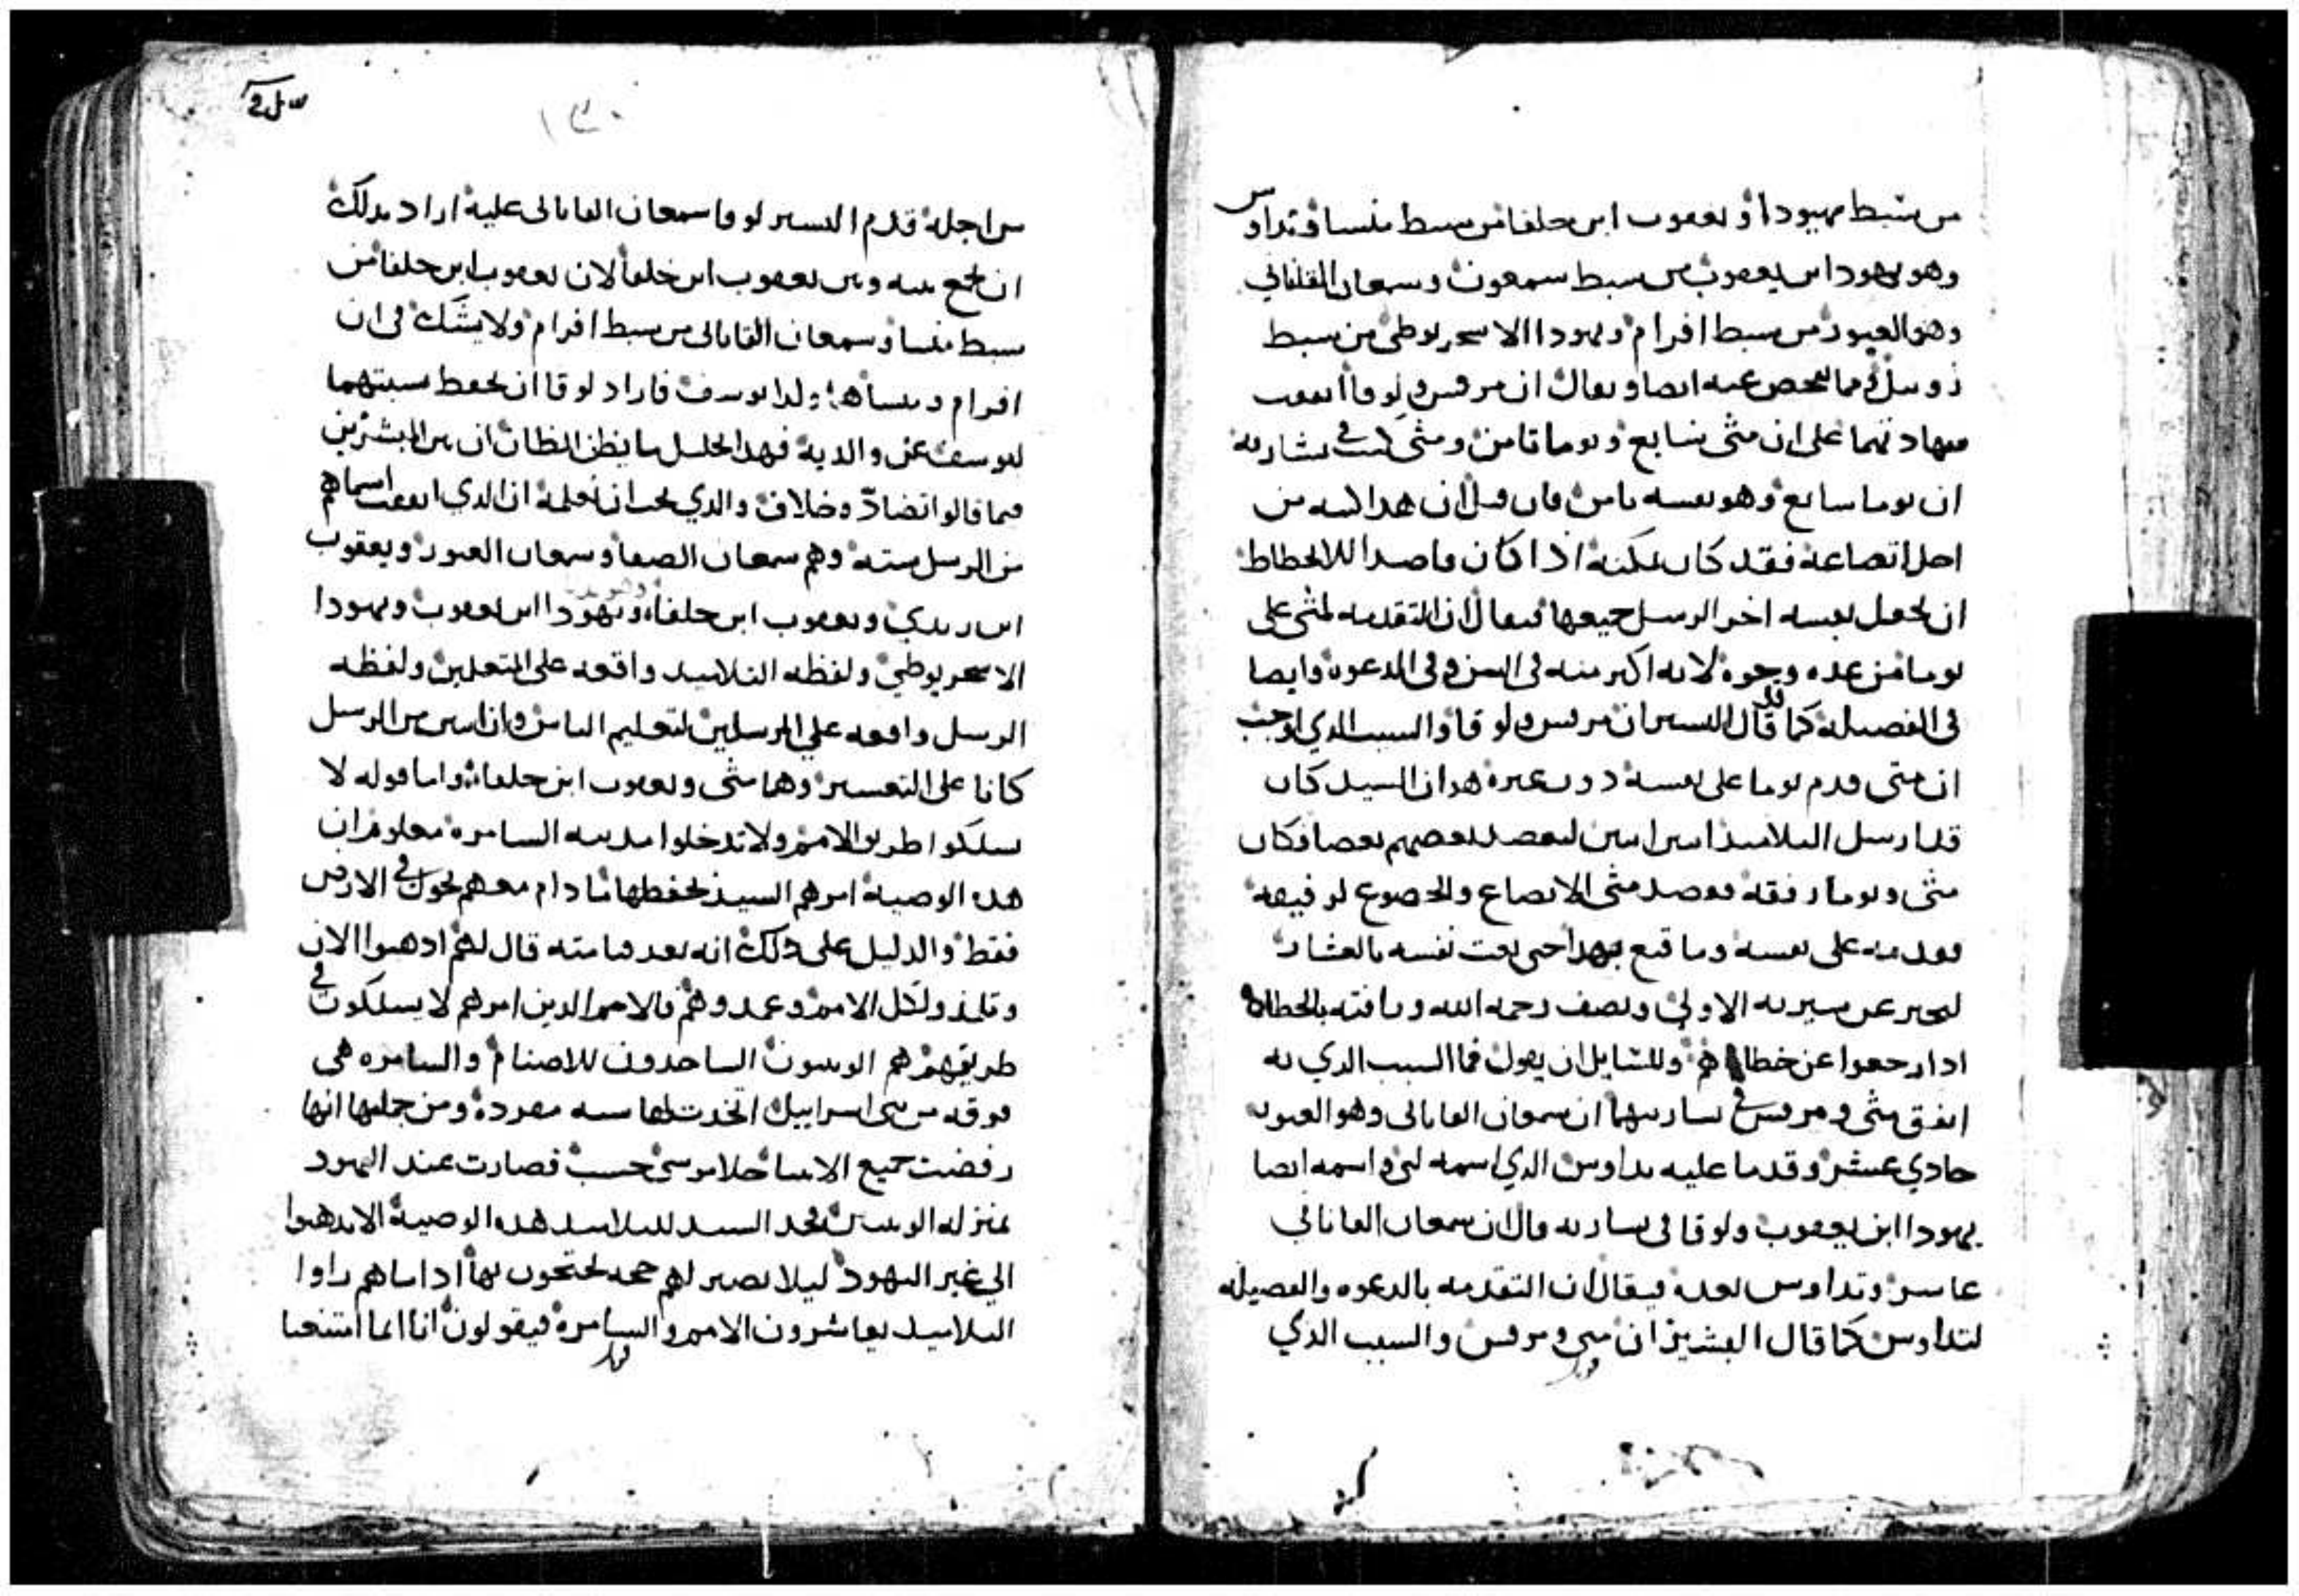 من سبط يهودا ويعقوب ابن حلفا من سبط منسا وتداوس
وهو يهودا ابن يعقوب من سبط سمعون وسمعان القاناني
وهو الغيور من سبط افرام ويهودا الاسخريوطي من سبط
ومما يفحص عنه ايضا ويقال ان مرقس ولوقا اتفقت
على ان متى سابع وتوما ثامن ومتى كتب في بشارته
ان توما سابع وهو نفسه ثامن فان قيل ان هذا كتبه من
اجل اتضاعه فقد كان يمكنه اذا كان قاصدا للانحطاط
ان يجعل نفسه اخر الرسل جميعها فيقال ان التقدمه لمتى على
توما من عده وجوه لانه اكبر منه في السن وفي الدعوه وايضا
في الفضيله كما قال البشيران مرقس ولوقا والسبب الدي اوجب
ان متى قدم توما على نفسه دون غيره هو ان السيد كان
قد ارسل التلاميد اثنين اثنين ليعضد بعضهم بعضا فكان
متى وتوما رفقه فقصد متى الاتضاع والخضوع لرفيقه
فقدمه على نفسه وما قنع بهدا حتى نعت نفسه بالعشار
ليخبر عن سيرته الاولى ويصف رحمه الله ورافته بالخطاه
ادا رجعوا عن خطاهم وللسايل ان يقول فما السبب الدي به
اتفق متى ومرقس في بشارتيهما ان سمعان القاناني وهو الغيور
حادي عشر وقدما عليه تداوس الدي اسمه لبي واسمه ايضا
يهودا ابن يعقوب ولوقا في بشارته قال ان سمعان القاناني
عاشر وتداوس بعده فيقال ان التقدمه بالدعوه والفضيله
لتداوس كما قال البشيران متى ومرقس والسبب الدي
من اجله قدم البشير لوقا سمعان القاناني عليه اراد بدلك
ان يجمع بينه وبين يعقوب ابن حلفا لان يعقوب ابن حلفا من
سبط منسا وسمعان القاناني من سبط افرام ولا يشك في ان
افرام ومنسا هما ولدا يوسف فاراد لوقا ان يحفظ نسبتهما
ليوسف عن والديه فهدا الحليل ما يظن الظان ان بين المبشرين
فيما قالوا تضادّ وخلاف والدي يجب ان نعلمه ان الدي اتفقت اسماهم
من الرسل سته وهم سمعان الصفا وسمعان الغيور ويعقوب
ابن زبدي ويعقوب ابن حلفا ويهودا ابن يعقوب ويهودا
الاسخريوطي ولفظه التلاميد واقعه على المتعلمين ولفظه
الرسل واقعه على المرسلين لتعليم الناس وان اثنين من الرسل
كانا على التعشير وهما متى ويعقوب ابن حلفا واما قوله لا
تسلكوا طريق الامم ولا تدخلوا مدينه السامره معلوم ان
هده الوصيه امرهم السيد بحفظها ما دام معهم في الارض
فقط والدليل على دلك انه بعد قيامته قال لهم ادهبوا الان
وتلمدوا كل الامم وعمدوهم فالامم الدين امرهم لا يسلكون في
طريقهم هم الوثنيون الساجدون للاصنام والسامره هي
فرقه من بني اسراييل اتخدت لها سنه مفرده ومن جملتها انها
رفضت جميع الانبيا خلا موسى حسب فصارت عند اليهود
بمنزله الوثنيين فحد السيد للتلاميد هده الوصيه الا يدهبوا
الى غير اليهود ليلا تصير لهم حجه يحتجون بها ادا ما هم راوا
التلاميد يعاشرون الامم والسامره فيقولون اننا انما امتنعنا